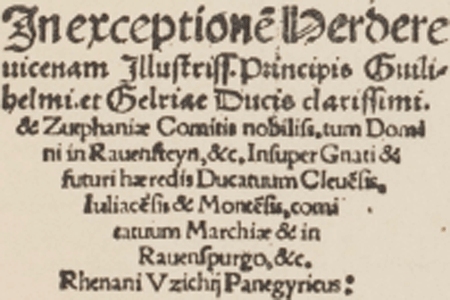 In exceptionē Verdere
uicenam Illustriss. Principis Guili-
helmi. et Gelriae Ducis clarissimi.
& Zutphaniæ Comitis nobiliss. tum Domi
ni in Rauensteyn, &c. Insuper Gnati &
futuri hæredis Ducatuum Cleuēsis,
Iuliacēsis & Montēsis, comi
tatuum Marchiæ & in
Rauenspurgo, &c.
Rhenani Vzichij Panegyricus: